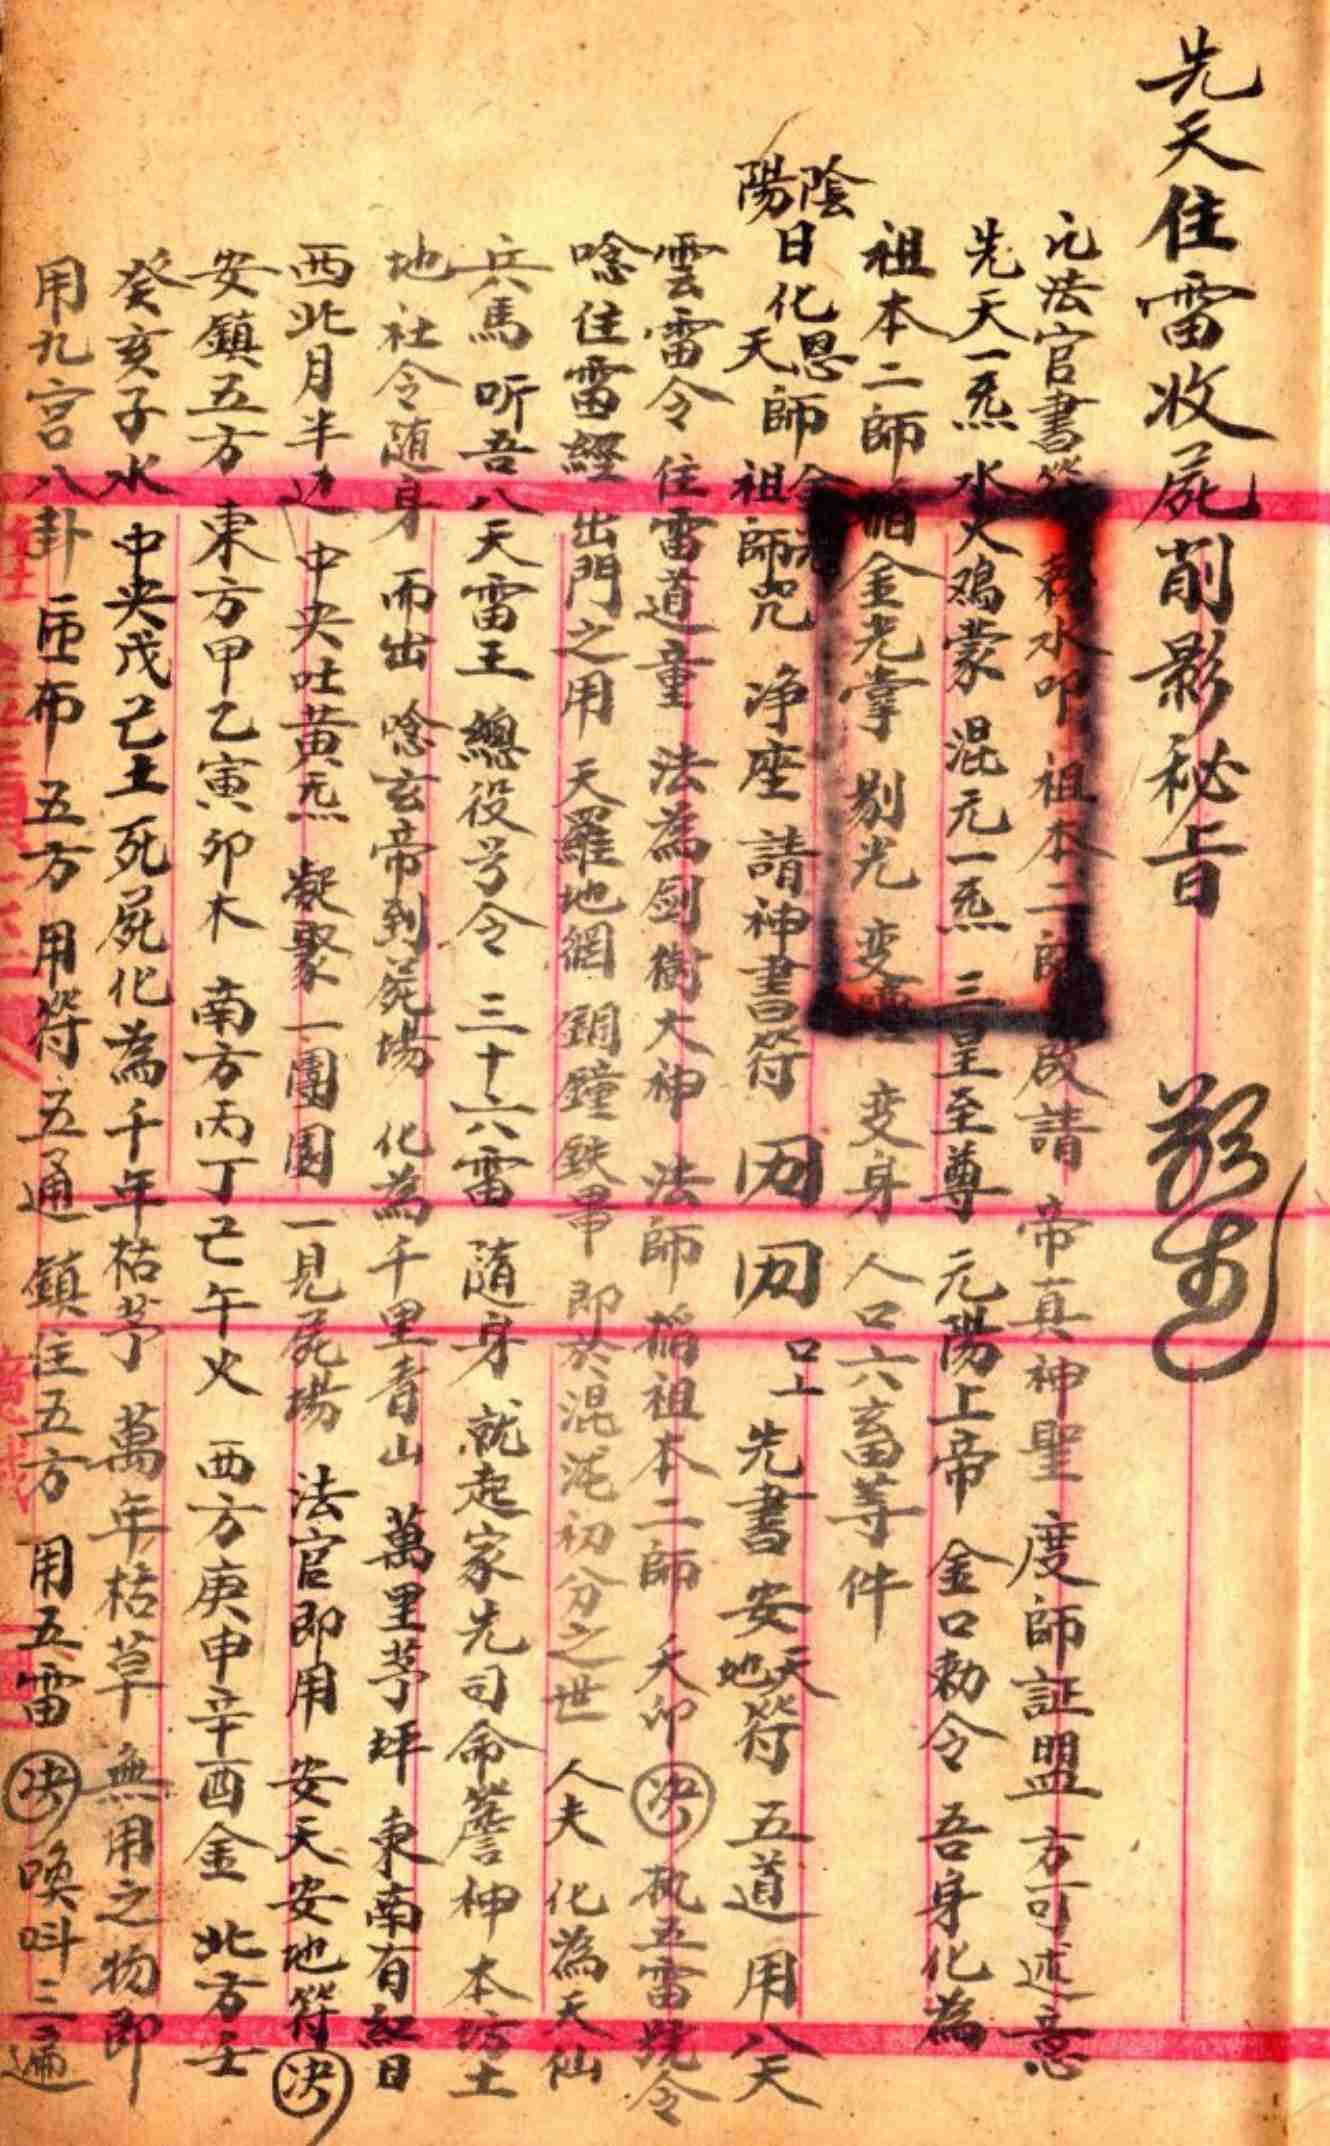 先天住雷收屍削影秘旨
凢法官書符 水叩祖本二師 啟請 帝真神聖 度師証盟 方可述意
先天一炁 水火鴻蒙 混元一炁 三皇至尊 元陽上帝 金口勅令 吾身化為
祖本二師 金光掌 剔光 变 变身 人口六畜等件
陰陽日化恩師 天師 祖師咒 净座 請神書符 先書 安天地符 五道 用八天
雲雷令 住雷道童 法為剑樹大神 法師 稻祖本二師 天卯 決 执五雷號令
唸住雷經 出門之用 天羅地網 銅鐘鉄 即於混沌初分之世 人夫 化為天仙
兵馬 听吾八天雷王 總役号令 三十六雷 随身 就起家先司命 神 本坊土
地社令随身 而出 唸玄帝到屍場 化為千里青山 萬里茅坪 東南有紅日
西北月半边 中央吐黄炁 凝聚一團圆 一見屍場 法官即用 安天安地符 決
安鎮五方 東方甲乙寅卯木 南方丙丁巳午火 西方庚申辛酉金 北方壬
癸亥子水 中央戊己土 死屍化為千年枯茅 萬年枯草 無用之物 即
用九宫八卦 匝布 五方 用符五通 鎮住五方 用五雷 決 喚呌三遍